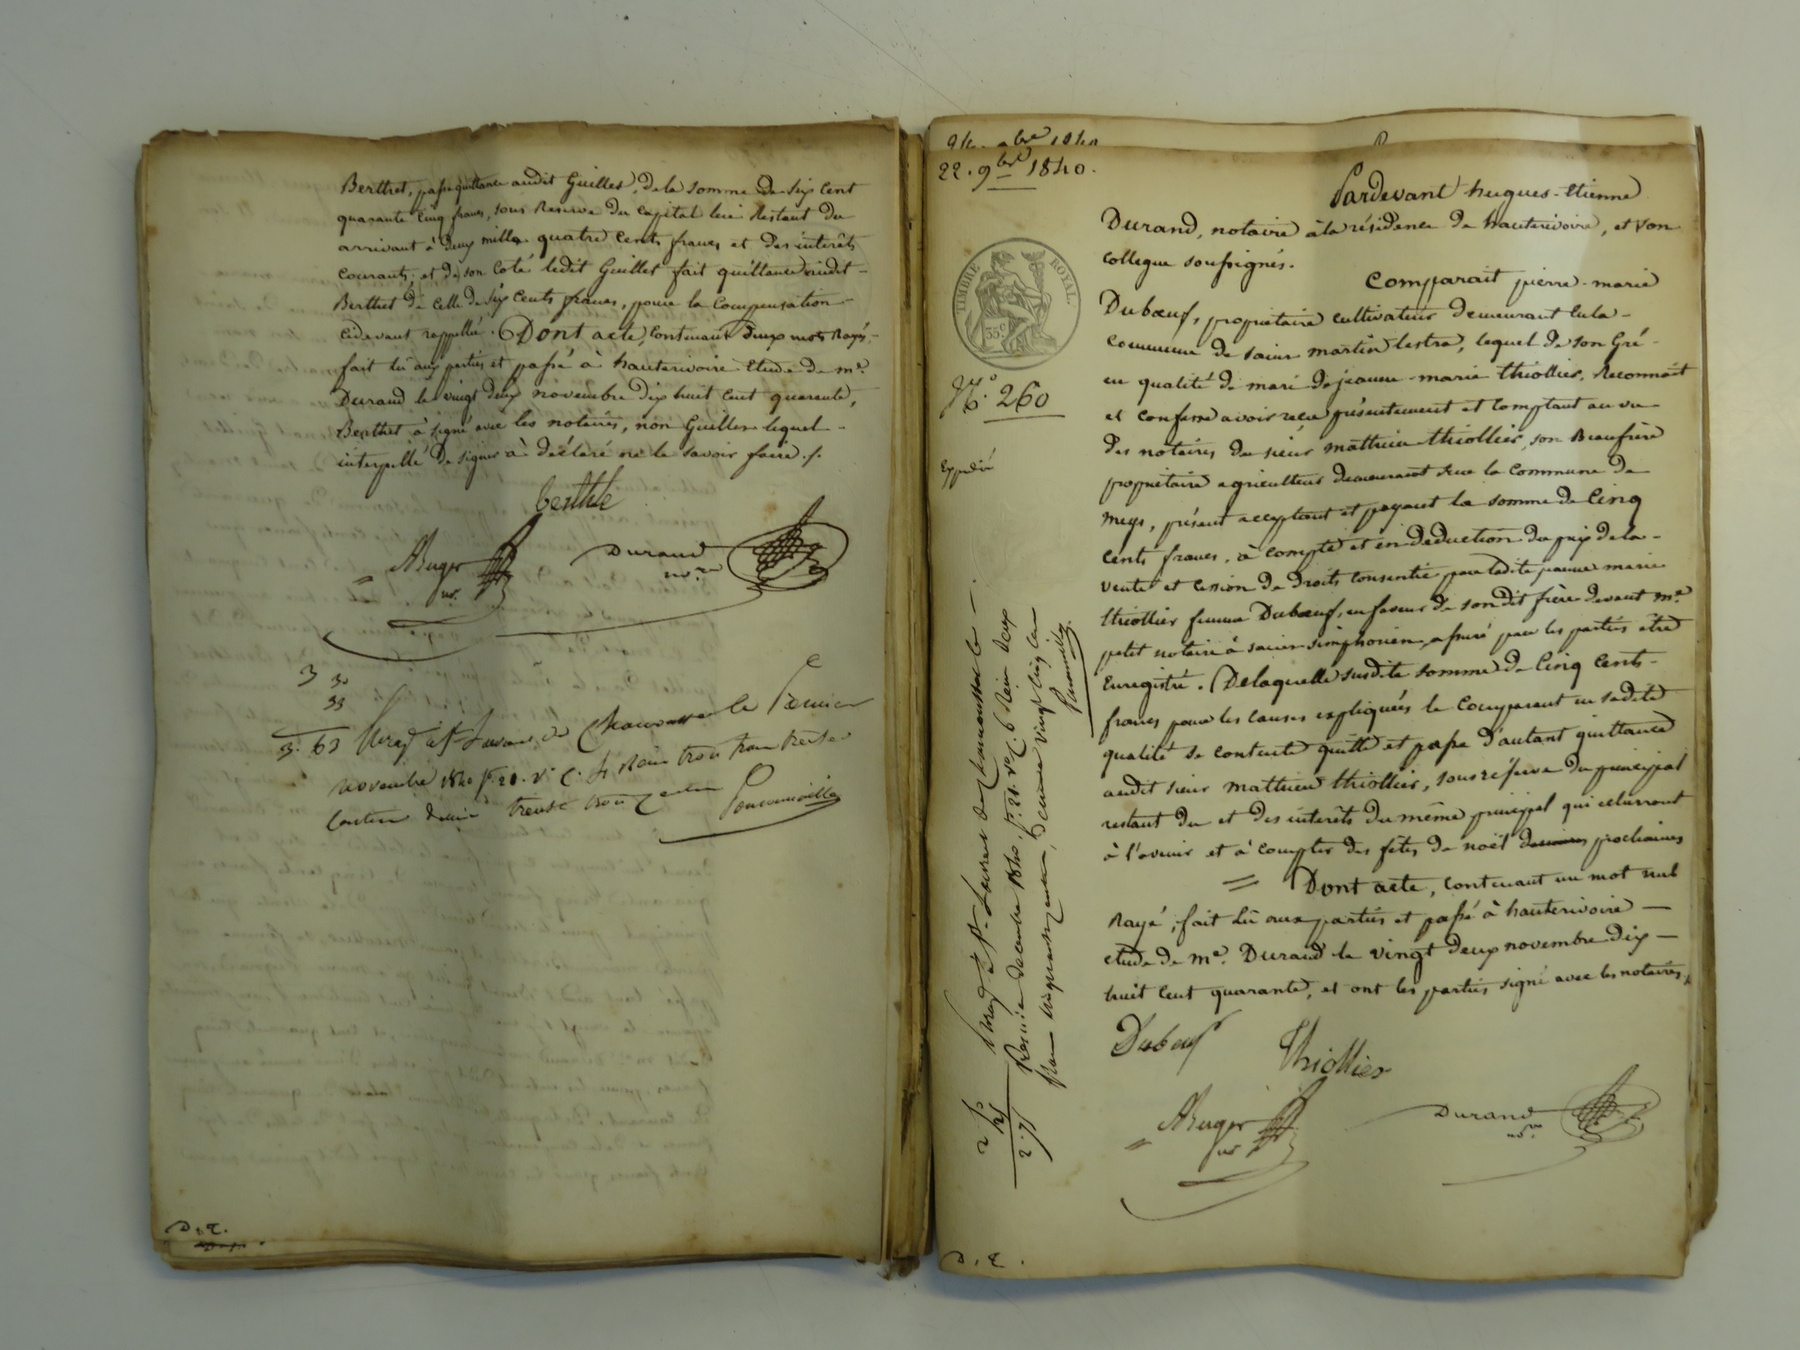 Berthet, passe quittance audit Guillet, de la somme de six cent
quarante cinq francs, sous Reserve du capital lui Restant du
arrivant à deux mille quatre cents francs et des intérêts
courants; et de son coté ledit Guillet fait quittance audit -
Berthet de celle de six cents francs, pour la compensation -
cidevant rappellée. Dont acte, contenant deux mots Rayés, -
fait lû aux parties et passé à hauterivoire Etude de me.
Durand le vingt deux novembre dix huit cent quarante,
Berthet à signé avec les notaires, non Guillet lequel -
interpellé de signer à déclaré ne le savoir faire ./.
berthet
Auger
nre.
Durand
nore
3 30
33
3. 63 Enreg. à St. Laurent de Chamousset le Premier
novembre 1840 f. 20. v. c. 4 Reçu trois francs trente
centimes dixième trente trois centimes
D. E.
9bre 1840
22. 9bre 1840.
TIMBRE ROYAL.
35c
No. 260
Expédié
Pardevant hugues-Etienne
Durand, notaire à la résidence de hauterivoire, et son
collegue soussignés.
Comparait pierre-marie
Dubœuf, propriétaire cultivateur demeurant en la -
commune de saint martin lestra, lequel de son Gré -
en qualité de mari de jeanne-marie thiollier, Reconnait
et confesse avoir reçu présentement et comptant au vu
des notaires du sieur matthieu thiollier, son Beaufrère
propriétaire agriculteur demeurant sur la commune de
meys, présent acceptant et payant la somme de Cinq
cents francs, à compte et en deduction du prix de la -
vente et cession de droits consentie par ladite jeanne marie
thiollier femme Dubœuf, en faveur de son dit frère devant me.
petit notaire à saint simphorien, assuré par les parties être
Enregistré. Delaquelle susdite somme de Cinq Cents -
francs pour les causes expliquées le comparant en sadite
qualité se contente quitte et passe d'autant quittance
audit sieur matthieu thiollier, sous réserve du principal
restant du et des intérêts du même principal qui courront
à l'avenir et à compter des fêtes de noël prochaines
= Dont acte, contenant un mot nul
Rayé; fait lû aux parties et passé à hauterivoire -
etude de me. Durand le vingt deux novembre dix -
huit cent quarante, et ont les parties signé avec les notaires ./.
Dubœuf
Thiollier
Auger
nre
Durand
nore.
Enreg. à St. Laurent de Chamousset le -
Premier décembre 1840, f. 21. v. c. 6 Reçu deux
francs cinquante centimes, Decime vingt cinq cen
2 50
25
2. 75
D. E.